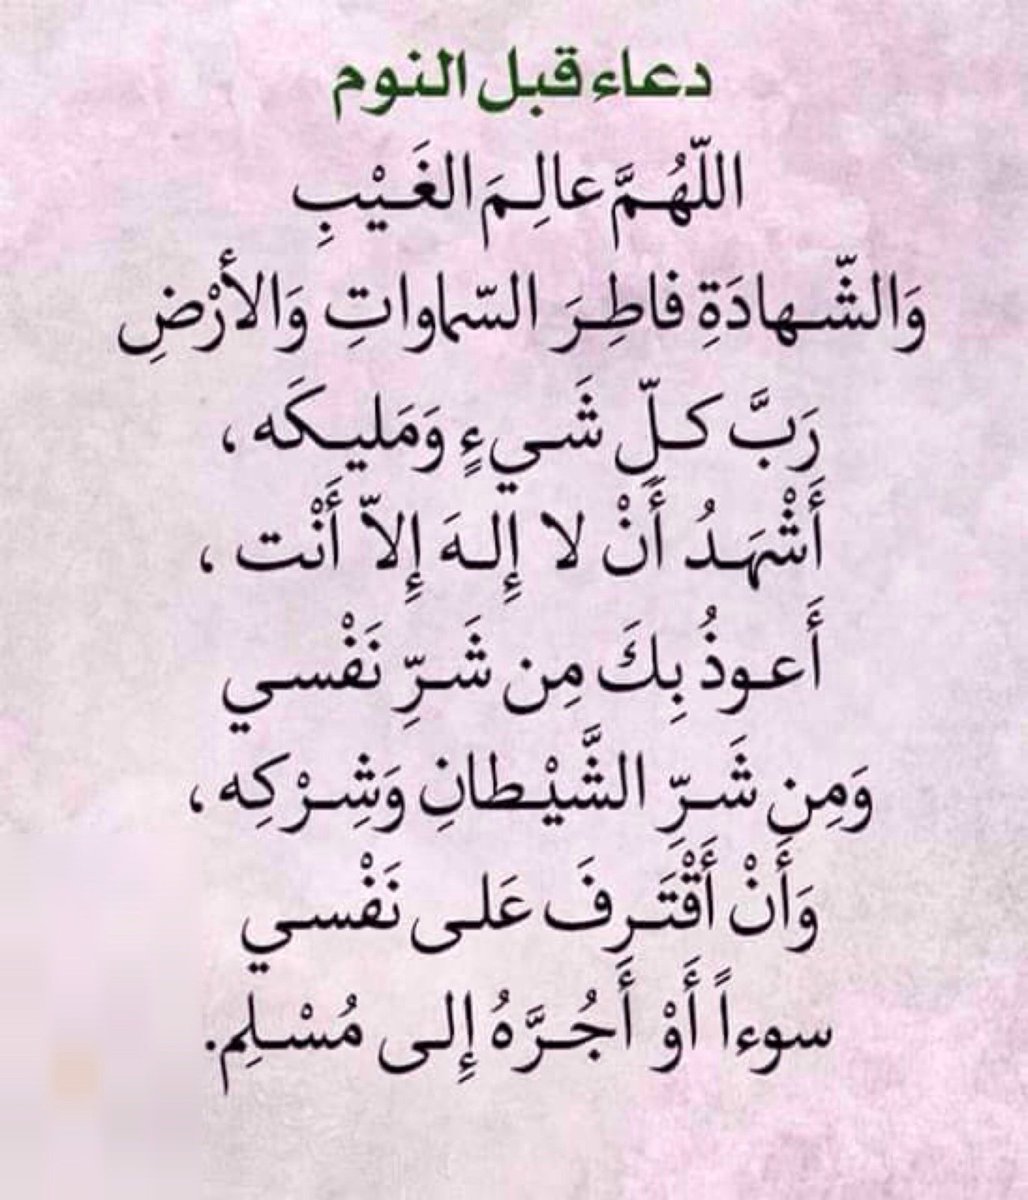 دعاء قبل النوم
اللّهُـمَّ عالِـمَ الغَـيْبِ
وَالشّـهادَةِ فاطِـرَ السّماواتِ وَالأرْضِ
رَبَّ كـلِّ شَـيءٍ وَمَليـكَه ،
أَشْهَـدُ أَنْ لا إِلـهَ إِلاّ أَنْت ،
أَعـوذُ بِكَ مِن شَـرِّ نَفْسـي
وَمِن شَـرِّ الشَّيْـطانِ وَشِـرْكِه ،
وَأَنْ أَقْتَـرِفَ عَلـى نَفْسـي
سوءاً أَوْ أَجُـرَّهُ إِلـى مُسْـلِم.